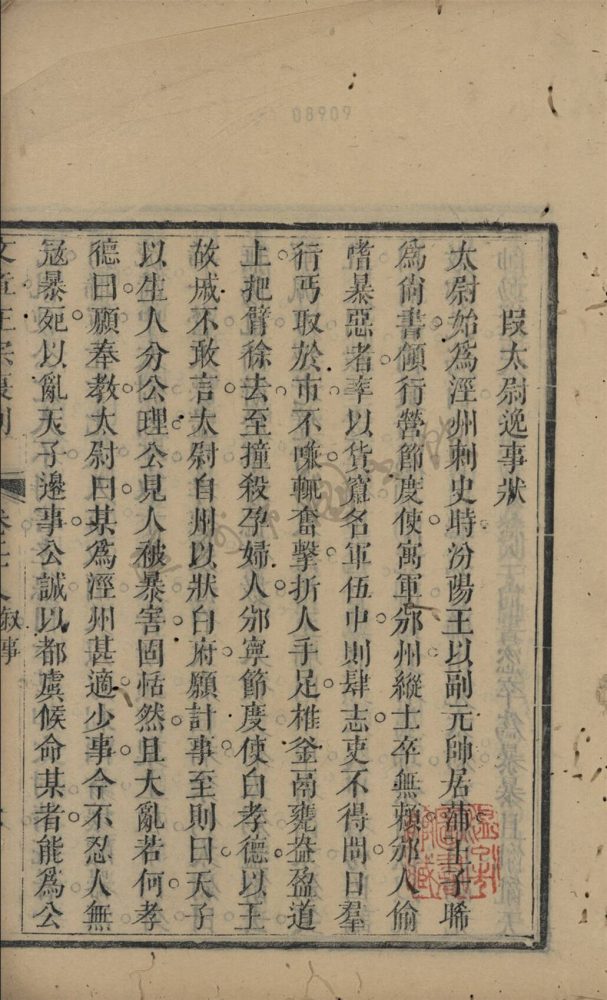 08909
段太尉逸事狀
太尉始爲涇州刺史時汾陽王以副元帥居蒲王子晞
爲尚書領行營節度使寓軍邠州縱士卒無賴邠人偷
嗜暴惡者率以貨竄名軍伍中則肆志吏不得問日羣
行丐取於市不嗛輒奮擊折人手足椎釜鬲甕盎盈道
上把臂徐去至撞殺孕婦人邠寧節度使白孝德以王
故戚不敢言太尉自州以狀白府願計事至則曰天子
以生人分公理公見人被暴害固恬然且大亂若何孝
德曰願奉教太尉曰某爲涇州甚適少事今不忍人無
寇暴死以亂天子邊事公誠以都虞候命某者能爲公